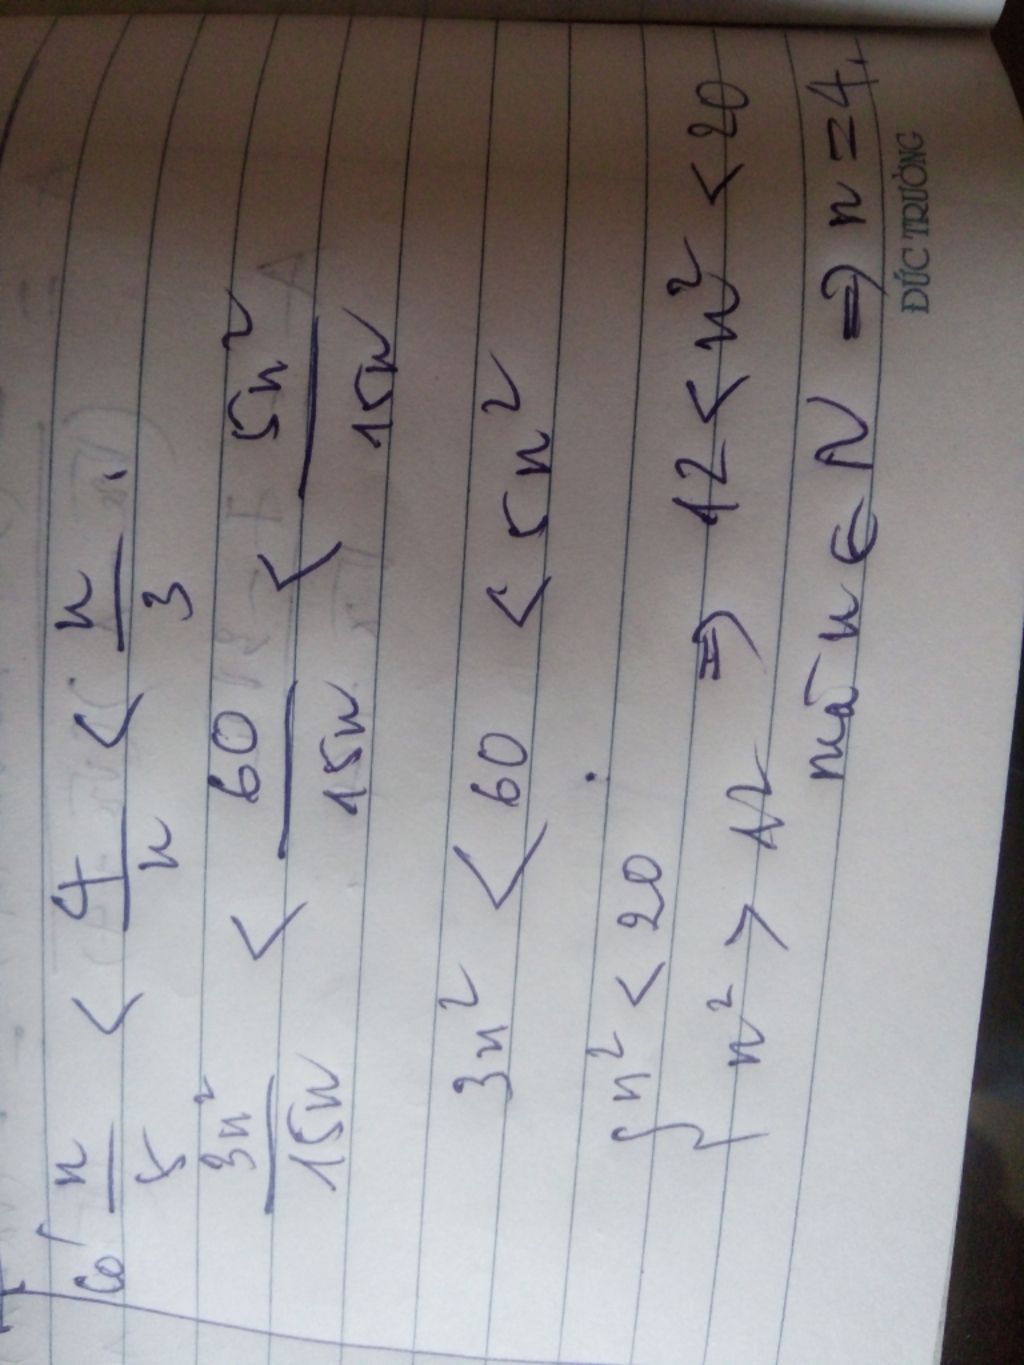 Có n/5 < 4/n < n/3.
3n²/15n < 60/15n < 5n²/15n
3n² < 60 < 5n²
{ n² < 20
n² > 12 ⇒ 12 < n² < 20
mà n ∈ N ⇒ n = 4.
ĐỨC TRƯỜNG